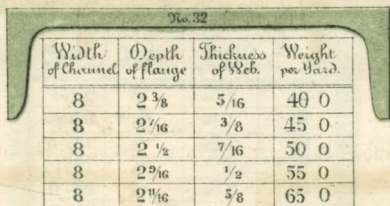 No. 32
Width of Channel Depth of flange Thickness of Web. Weight per Yard.
8 2 3/8 5/16 40 0
8 2 7/16 3/8 45 0
8 2 1/2 7/16 50 0
8 2 9/16 1/2 55 0
8 2 11/16 5/8 65 0